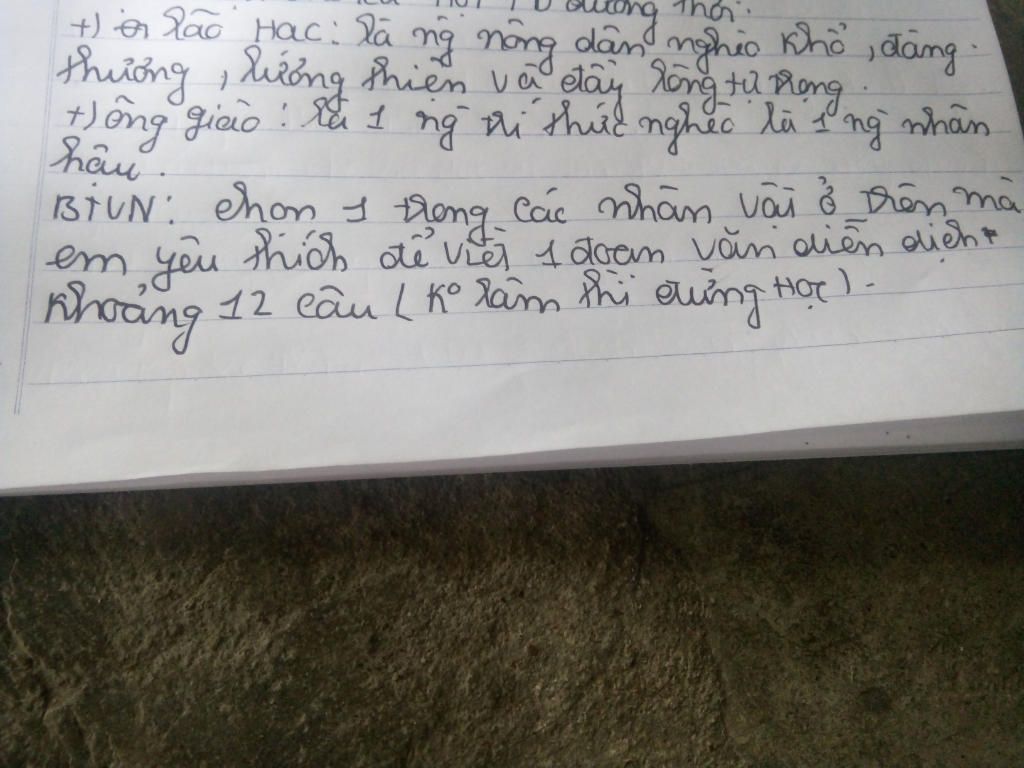 đương thời.
+) Lão Hạc: là ng nông dân nghèo khổ, đáng
thương, lương thiện và đầy lòng tự trọng.
+) ông giáo: là 1 ng trí thức nghèo là 1 ng nhân
hậu.
BTVN: chọn 1 trong các nhân vật ở trên mà
em yêu thích để viết 1 đoạn văn diễn dịch
khoảng 12 câu (Ko làm thì đừng Học).